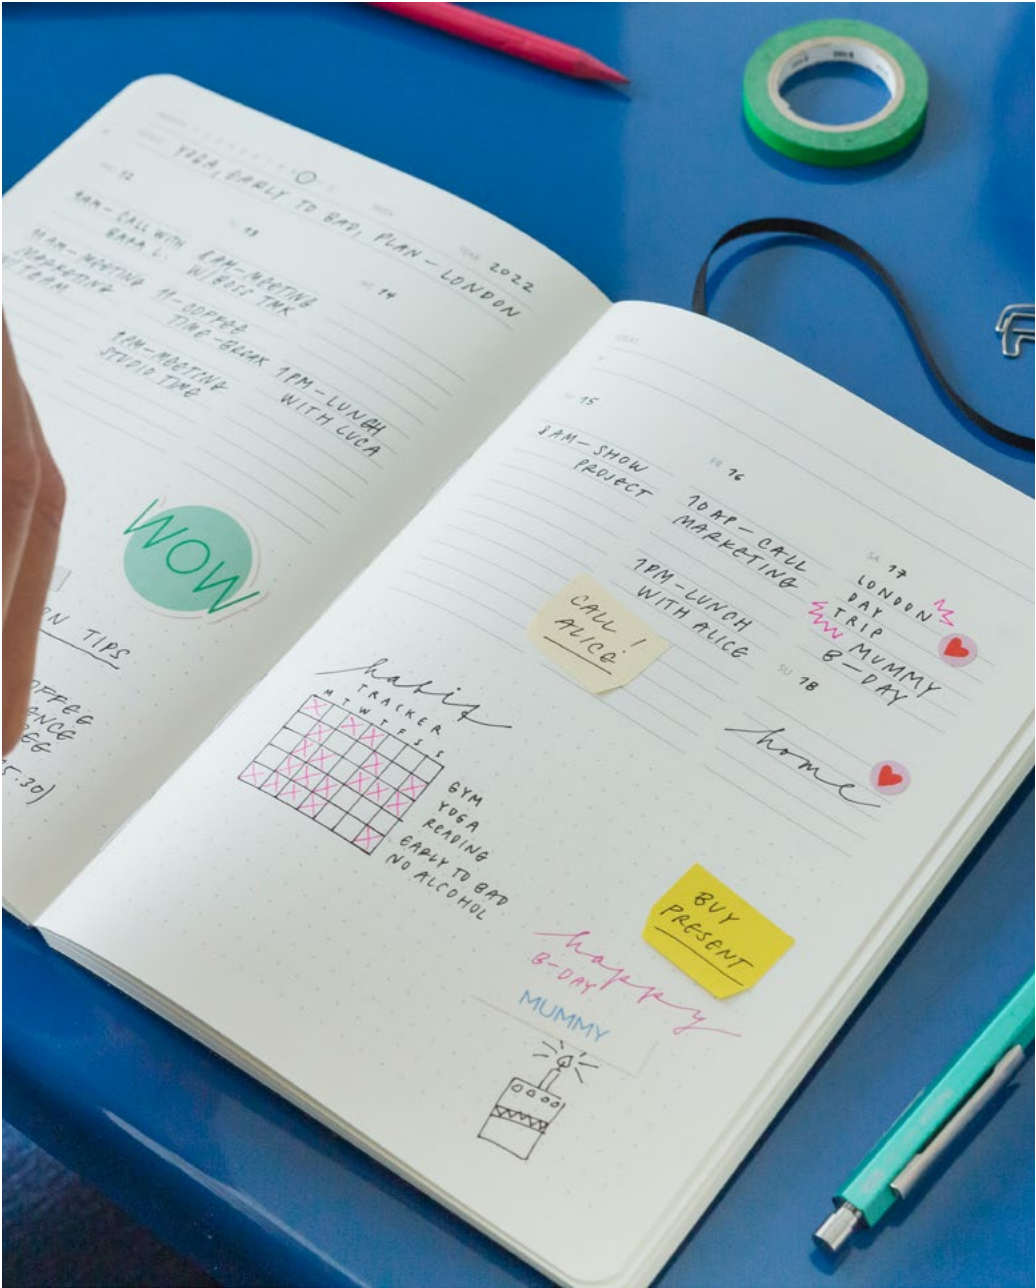 YOGA, EARLY TO BAD, PLAN – LONDON
YEAR 2022
12
9AM – CALL WITH
11AM – MEETING
MARKETING
TEAM
13
8AM – MEETING
W/ BOSS TMK
11 – COFFEE
TIME – BREAK
1PM – MEETING
STUDIO TIME
14
1PM – LUNCH
WITH LUCA
WOW
TIPS
15
8AM – SHOW
PROJECT
FR 16
10AP – CALL
MARKETING
1PM – LUNCH
WITH ALICE
CALL!
ALICE
SA 17
LONDON
DAY
TRIP
MUMMY
B – DAY
SU 18
home
habit
TRACKER
M T W T F S S
GYM
YOGA
READING
EARLY TO BAD
NO ALCOHOL
BUY
PRESENT
happy
B-DAY
MUMMY